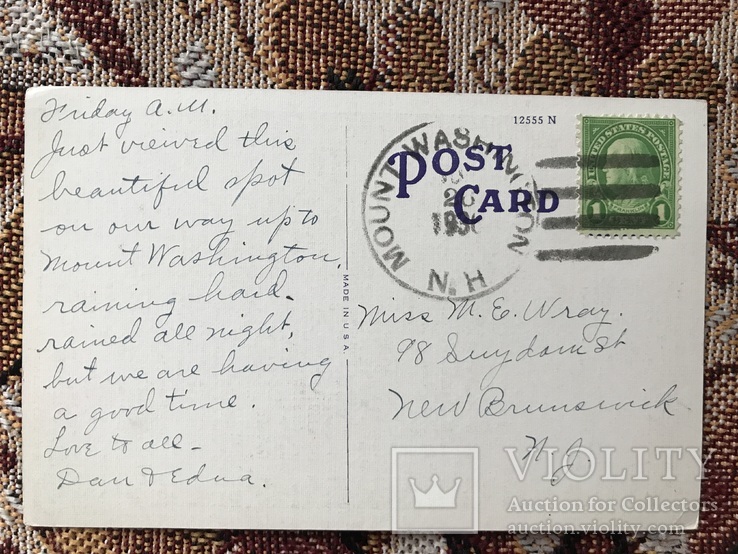 Friday A.M.
Just viewed this
beautiful spot
on our way up to
Mount Washington,
raining hard.
rained all night,
but we are having
a good time.
Love to all -
Dan & Edna.
MADE IN U.S.A.
12555 N
POST
CARD
MOUNT WASHINGTON
N.H
26
UNITED STATES POSTAGE
1 1
Miss M. E. Wray.
98 Suydam St
New Brunswick
N.J.
VIOLITY
Auction for Collectors
auction.violity.com